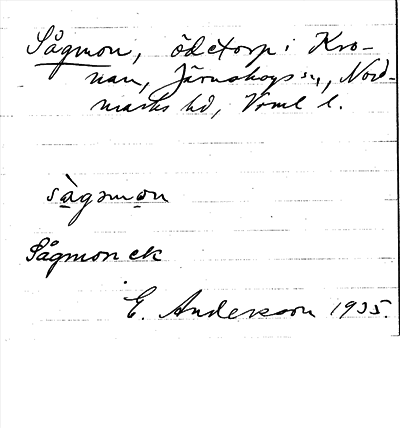 Sågmon, ödetorp i Kro-
nan, Järnskogs sn, Nord-
marks hd, Vrml l.
sàgmon
Sågmon ek
E. Andersson 1935.